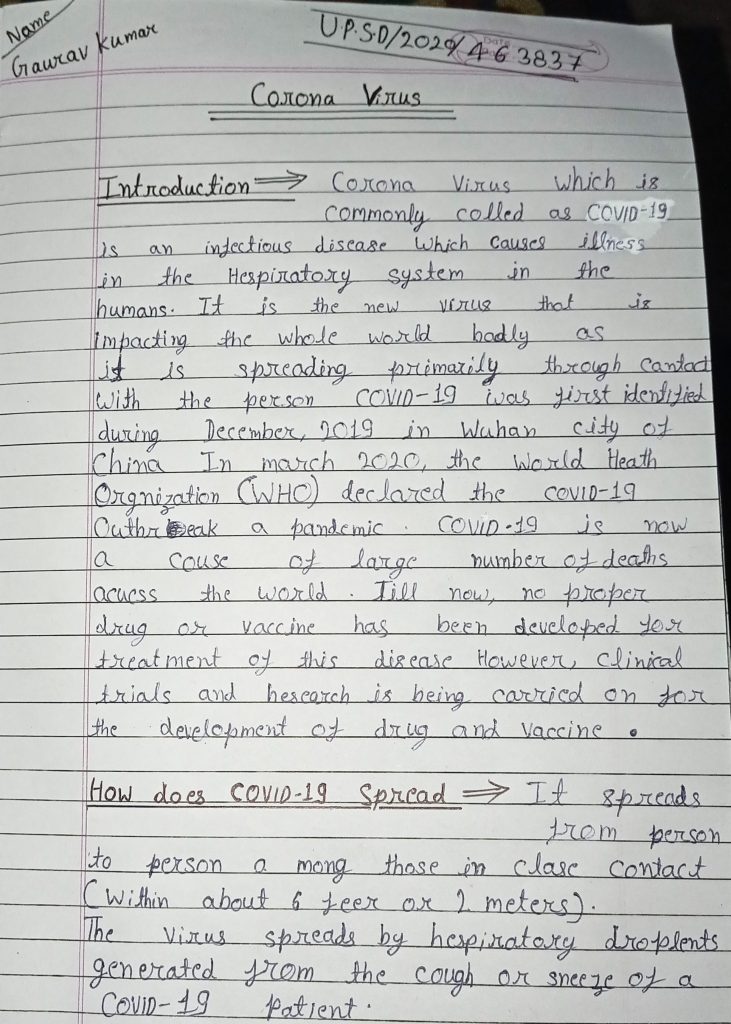 Name
Gaurav Kumar
U.P.S.D/2020/463837
Corona Virus
Introduction ⇒ Corona Virus which is
commonly called as COVID-19
is an infectious disease which causes illness
in the Hespiratory system in the
humans. It is the new virus that is
impacting the whole world badly as
it is spreading primarily through cantact
with the person COVID-19 was first identified
during December, 2019 in Wuhan city of
China In march 2020, the World Heath
Orgnization (WHO) declared the COVID-19
Outhreak a pandemic. COVID-19 is now
a couse of large number of deaths
acucss the world. Till now, no proper
drug or vaccine has been developed for
treatment of this disease However, Clinical
trials and hesearch is being carried on for
the development of drug and vaccine.
How does COVID-19 Spread ⇒ It spreads
from person
to person a mong those in clase contact
(Within about 6 feer or 2 meters).
The Virus spreads by hespiratory droplents
generated from the cough or sneeze of a
COVID-19 Patient.